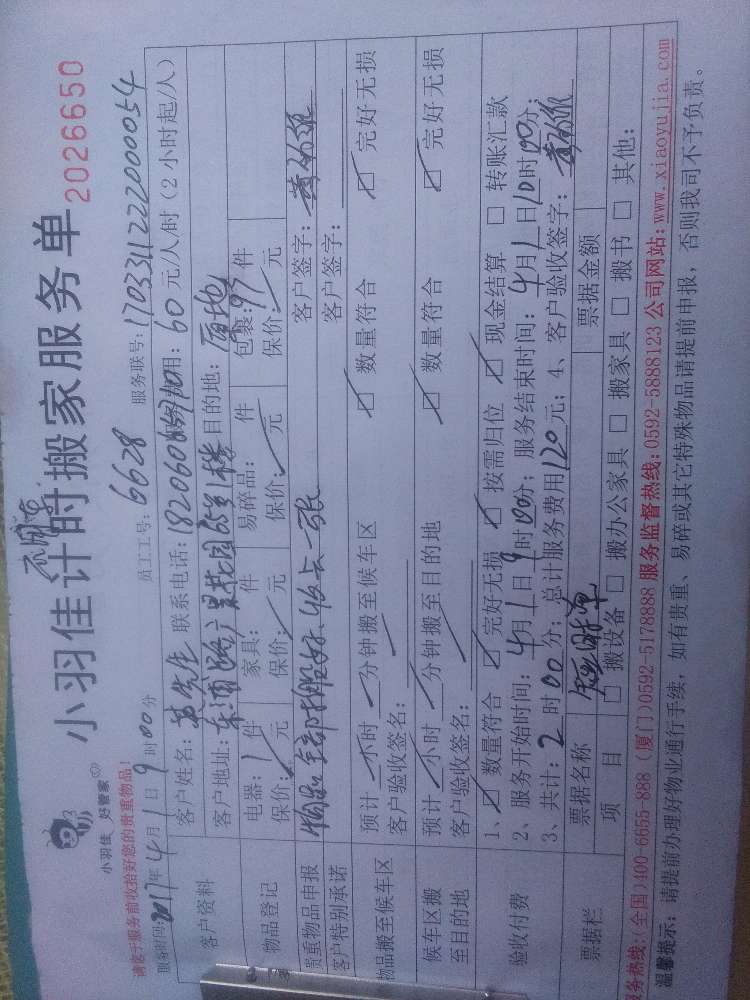 小羽佳 好管家
小羽佳计时搬家服务单 2026650
请您于服务前收拾好您的贵重物品!
服务时间:2017年4月1日9时00分 员工工号:6628 服务联号:170331122200054
客户资料
客户姓名: 先生 联系电话: 用:60元/人/时(2小时起/人)
客户地址: 目的地:
物品登记
电器:1件 家具: 件 易碎品: 件 包裹:97件
保价: 元 保价: 元 保价: 元 保价: 元
贵重物品申报 物品全部搬好 客户签字:
客户特别承诺 客户签字:
物品搬至候车区
预计 小时 分钟搬至候车区 ☑ 数量符合 ☑ 完好无损
客户验收签名:
候车区搬至目的地
预计 小时 分钟搬至目的地 ☑ 数量符合 ☑ 完好无损
客户验收签名:
验收付费
1、☑ 数量符合 ☑ 完好无损 ☑ 按需归位 ☑ 现金结算 □ 转账汇款
2、服务开始时间:4月1日9时00分;服务结束时间:4月1日10时00分;
3、共计:2时00分;总计服务费用120元;4、客户验收签字:
票据栏
票据名称 票据金额
项目 □ 搬设备 □ 搬办公家具 □ 搬家具 □ 搬书 □ 其他:
服务热线:(全国)400-6655-888 (厦门)0592-5178888 服务监督热线:0592-5888123 公司网站:www.xiaoyujia.com
温馨提示:请提前办理好物业通行手续,如有贵重、易碎或其它特殊物品请提前申报,否则我司不予负责。